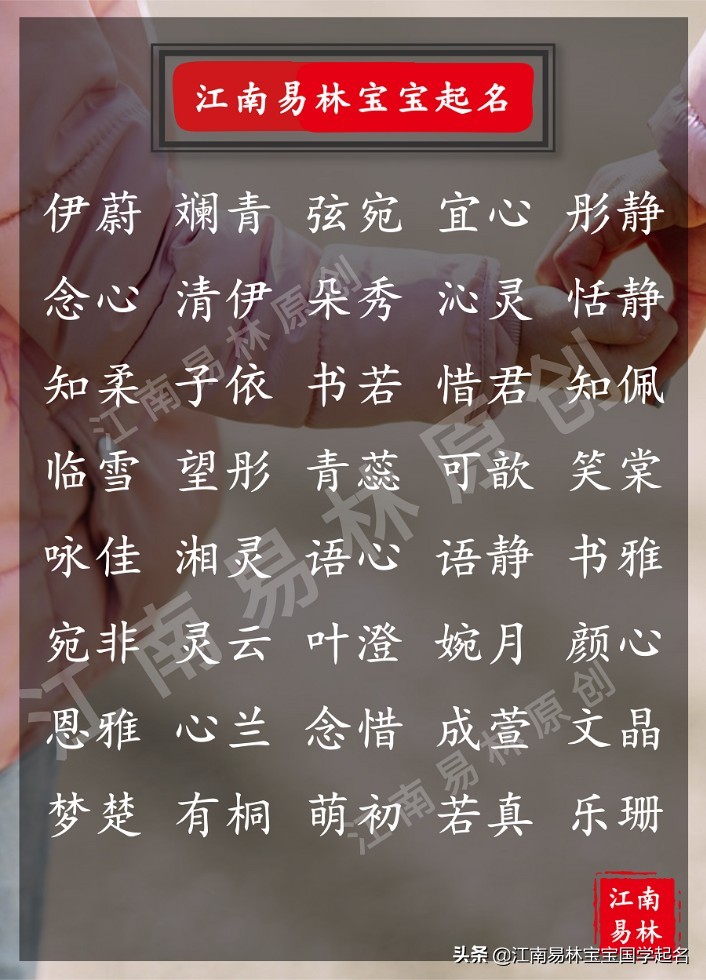 江南易林宝宝起名
伊蔚 斓青 弦宛 宜心 彤静
念心 清伊 朵秀 沁灵 恬静
知柔 子依 书若 惜君 知佩
临雪 望彤 青蕊 可歆 笑棠
咏佳 湘灵 语心 语静 书雅
宛非 灵云 叶澄 婉月 颜心
恩雅 心兰 念惜 成萱 文晶
梦楚 有桐 萌初 若真 乐珊
江南易林原创
江南易林原创
江南易林原创
江南
易林
头条 @江南易林宝宝国学起名